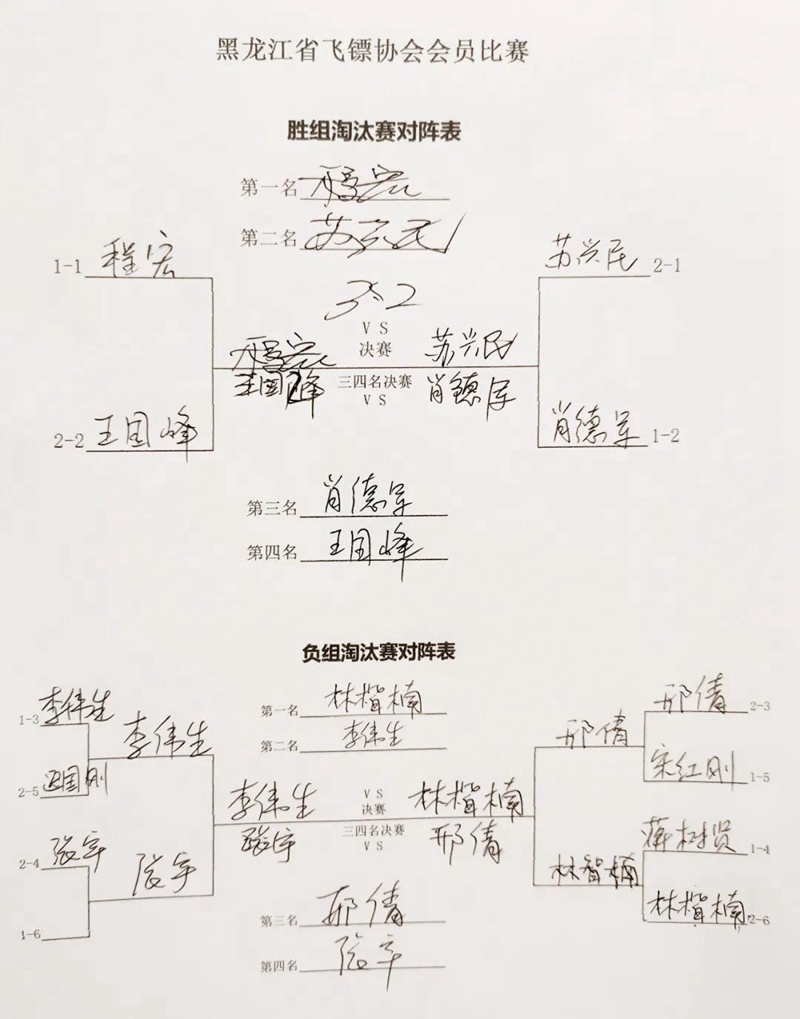 黑龙江省飞镖协会会员比赛
胜组淘汰赛对阵表
第一名 程宏
第二名 苏兴民
1-1 程宏
苏兴民 2-1
3:2
VS
决赛
程宏 苏兴民
三四名决赛
王国峰 肖德军
VS
2-2 王国峰
肖德军 1-2
第三名 肖德军
第四名 王国峰
负组淘汰赛对阵表
第一名 林楷楠
第二名 李伟生
1-3 李伟生
李伟生
邢倩
邢倩 2-3
2-5 国刚
宋红刚 1-5
李伟生 VS 林楷楠
决赛
张宇 三四名决赛 邢倩
VS
2-4 张宇
张宇
林智楠
1-4
1-6
林楷楠 2-6
第三名 邢倩
第四名 张宇